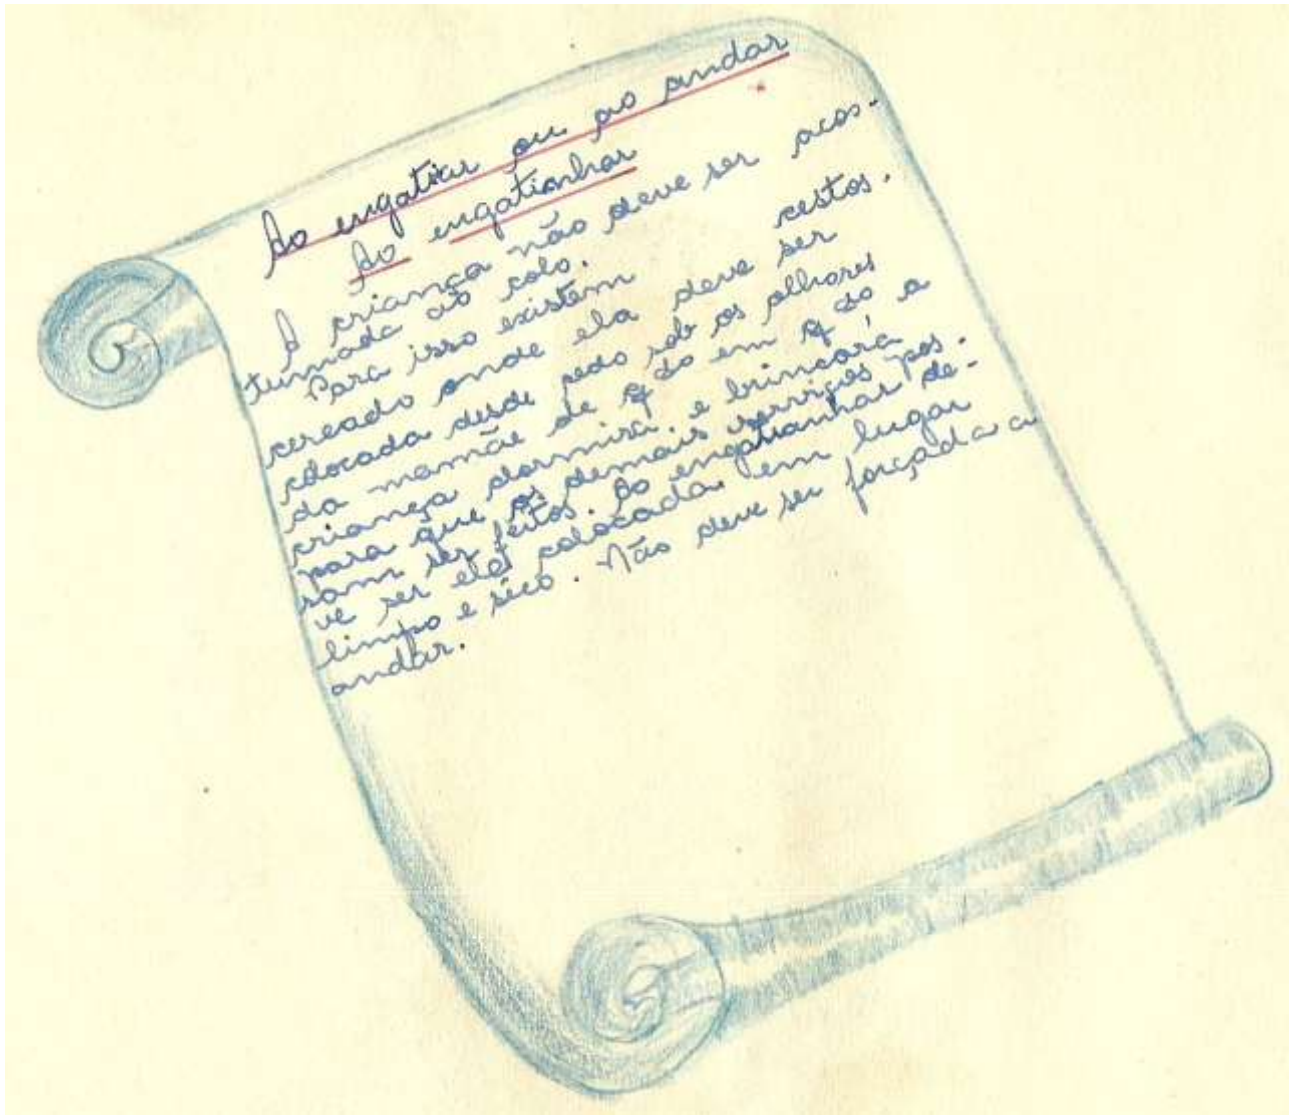 Ao engatiar ou ao andar
Ao engatinhar
A criança não deve ser acos-
tumada ao colo.
Para isso existem cestos.
cercado onde ela deve ser
colocada desde cedo sob os olhares
da mamãe de qdo em qdo a
criança dormirá e brincará
para que os demais serviços pos-
sam ser feitos. Ao engatianhar de-
ve ser ela colocada em lugar
limpo e sêco. Não deve ser forçada a
andar.